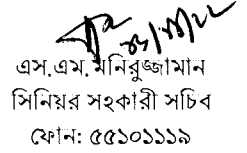 এস.এম. মনিরুজ্জামান
সিনিয়র সহকারী সচিব
ফোন: ৫৫১০১১১৯